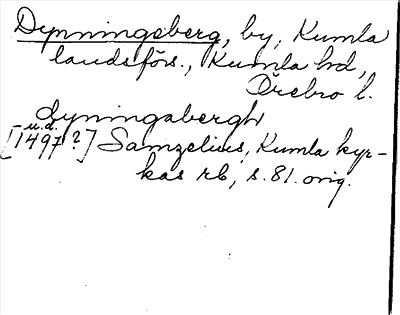 Dynningeberg, by, Kumla
landsförs., Kumla hd,
Örebro l.
dyningabergh
[u.d. 1497?] Samzelius, Kumla kyr-
kas rb, s. 81. orig.